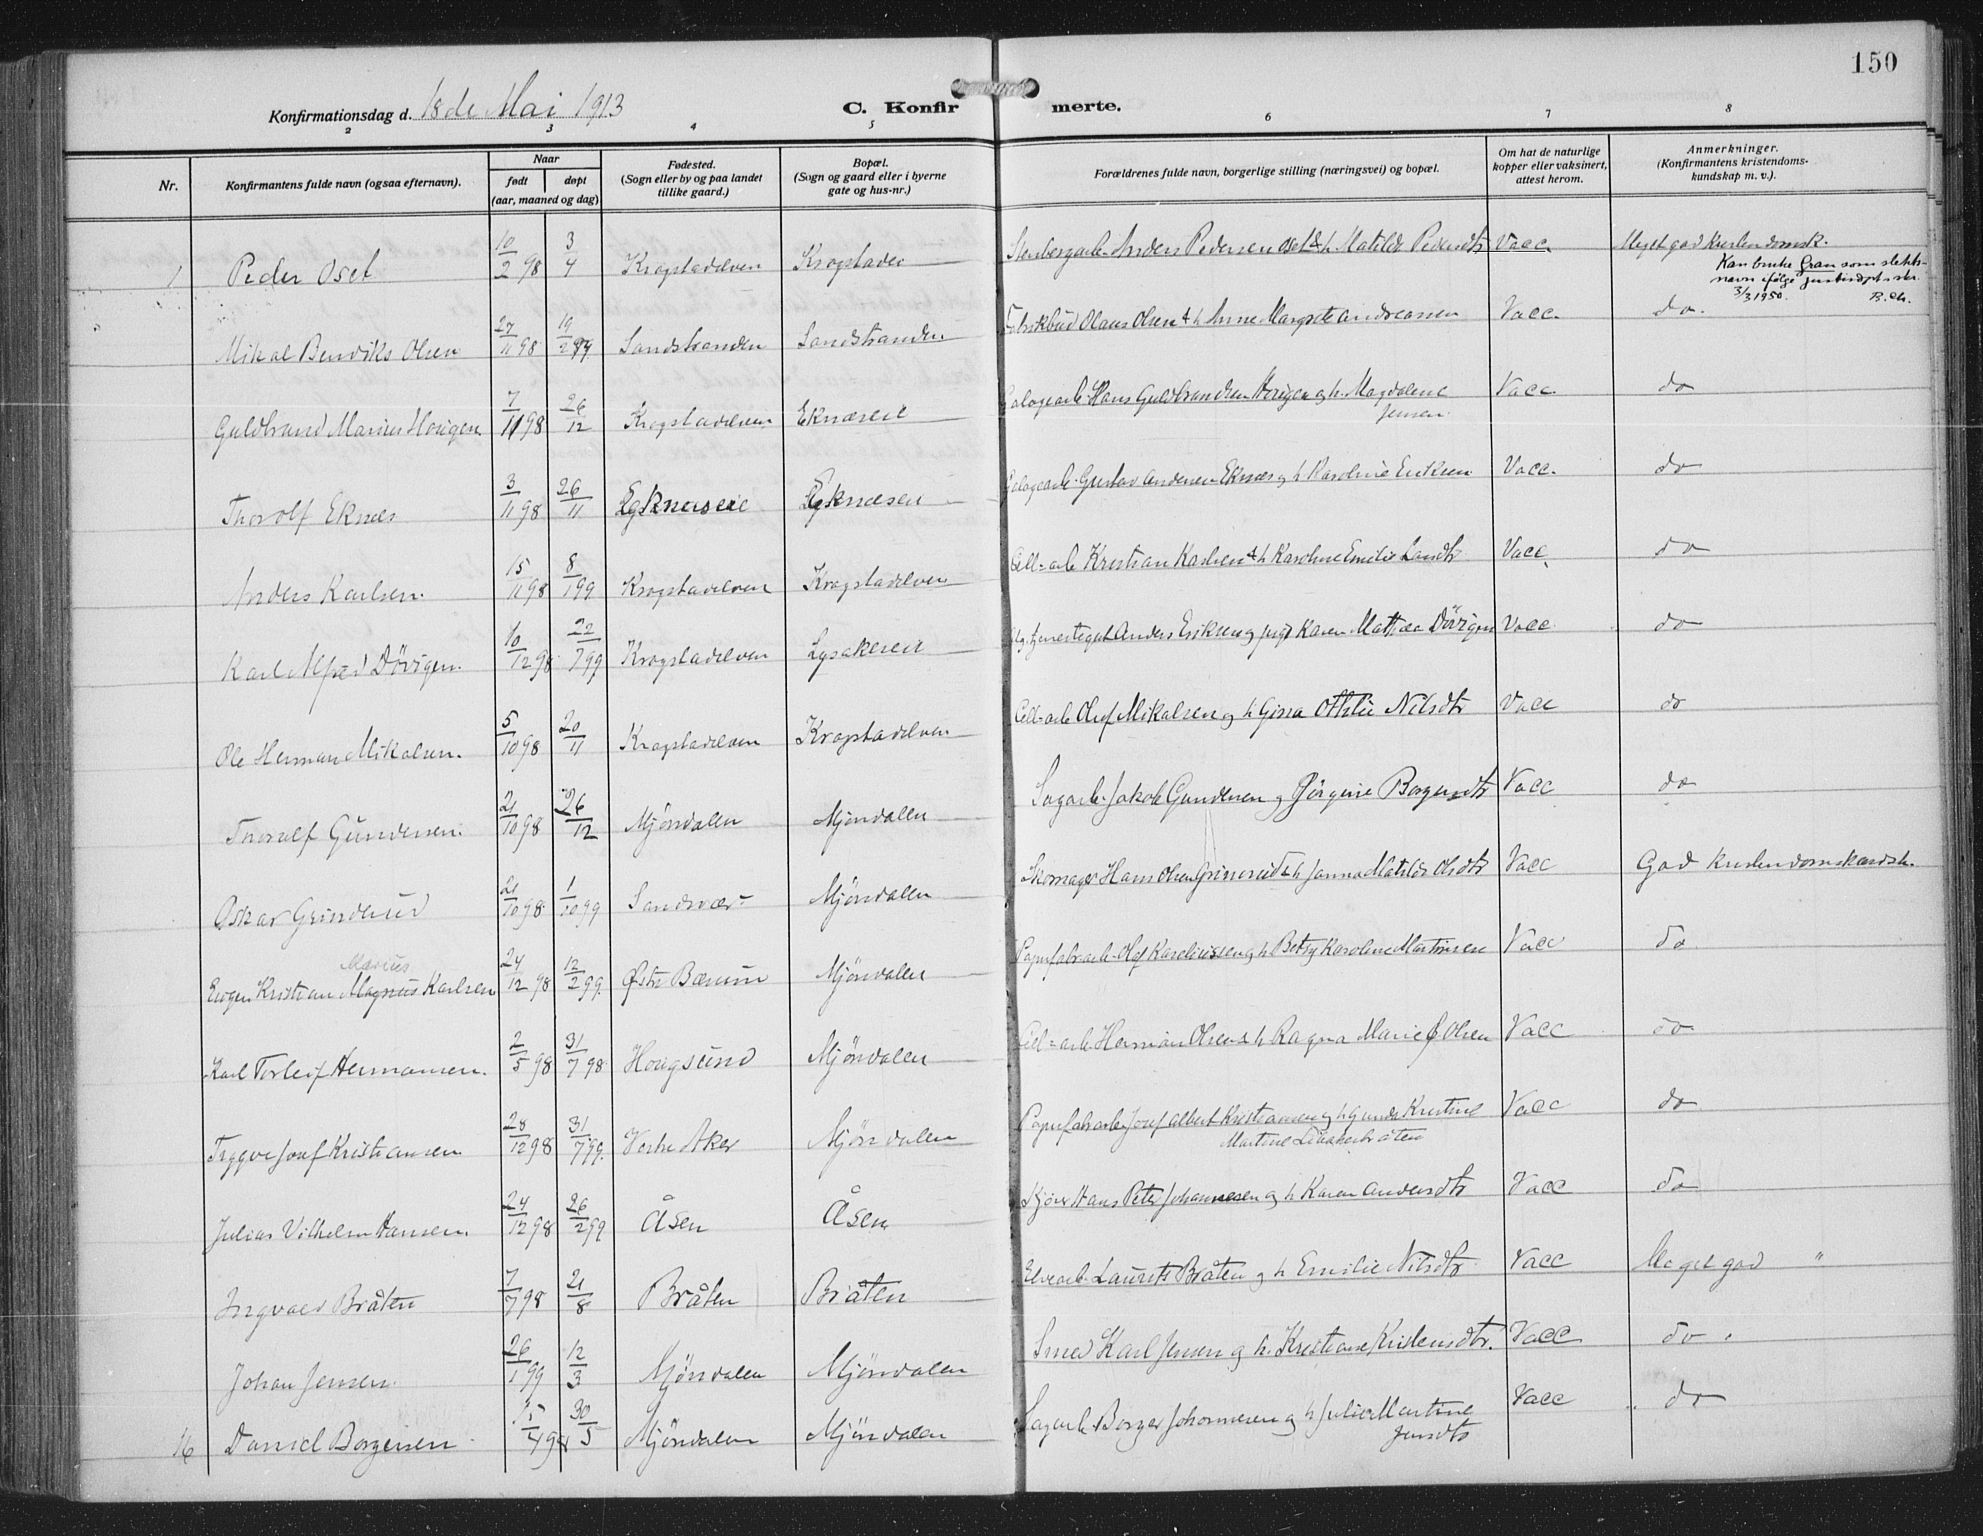 150
Konfirmationsdag d. 18de Mai 1913
C. Konfirmerte.
2 3 4 5 6 7 8
Nr.
Konfirmantens fulde navn (ogsaa efternavn).
Naar
født
døpt
(aar, maaned og dag)
Fødested.
(Sogn eller by og paa landet
tillike gaard.)
Bopæl.
(Sogn og gaard eller i byerne
gate og hus-nr.)
Forældrenes fulde navn, borgerlige stilling (næringsvei) og bopæl.
Om hat de naturlige
kopper eller vaksinert,
attest herom.
Anmerkninger.
(Konfirmantens kristendoms-
kundskap m. v.).
1 Peder Oset 10/2 98 3/4 Krogstadelven Anders Pedersen Oset & h. Matilde Pedersdtr Vacc Meget god Kristendomsk.
Kan bruke Gran som slekts-
navn ifølge
3/3 1950.
Mikal Bendiks Olsen 27/11 98 19/2 99 Sandstranden Sandstranden Olaus Olsen & h Anne Margrete Andreassen Vacc. do.
Guldbrand Marius Hougen 7/11 98 26/12 Krogstadelven Eknæseie Hans Guldbrandsen Hougen og h. Magdalene
Jensen. Vacc. do
Thorolf Eknæs 3/11 98 26/11 Egknæseie Egknæseie Gustav Andersen Eknæs og h Karoline Eriksen Vacc. do
Anders Karlsen. 15/11 98 8/1 99 Krogstadelven Krogstadelven Cell-arb Kristian Karlsen & h Karoline Emilie Vacc. do
Karl Alfred Dövigen. 10/12 98 22/7 99 Krogstadelven Lysakereie Anders Eriksen og pige Karen Mathea Dövigen Vacc. do
Ole Herman Mikalsen. 5/10 98 20/11 Krogstadelven Krogstadelven Cell-arb Olof Mikalsen og h Gina Othilie Nilsdtr Vacc do
Thoralf Gundersen. 21/10 98 26/12 Mjöndalen Mjöndalen Sagarb. Jakob Gundersen og Jörgine Borgersdtr Vacc do
Oskar Grinderud 21/10 98 1/10 99 Sandsvær Mjöndalen Skomager Hans Olsen Grinerud & h Janna Matilde Olsdtr Vacc God kristendomskundsk.
Marius
Eugen Kristian Magnus Karlsen 24/12 98 12/2 99. Østre Bærum Mjöndalen Papirfabarb. Olaf Karelinssen og h Betsy Karoline Martinsen Vacc do.
Karl Torleif Hermansen. 2/5 98 31/7 98 Hougsund Mjöndalen Cel-arb Herman Olsen & h Ragna Marie Olsen Vacc do
Trygve Josef Kristiansen 28/12 98 31/7 99. Vestre Aker Mjöndalen Papirfabarb Josef Albert Kristiansen og h Gunda Kristine
Martine Vacc do
Julius Vilhelm Hansen. 24/12 98 26/2 99 Åsen Åsen Kjörer Hans Peter Johannesen og h Karen Andersdtr Vacc do
Ingvald Bråten 7/7 98 21/8 Bråten Bråten Elvearb. Laurits Bråten og h Emilie Nilsdtr Vacc Meget god "
Johan Jensen. 26/1 99 12/3 Mjöndalen Mjöndalen Smed Karl Jensen og h. Kristiane Kristensdtr. Vacc do.
16 Daniel Borgersen 30/5 Mjöndalen Mjöndalen Sagarb Borger Johannesen og h Julie Martine
Jensdtr Vacc do